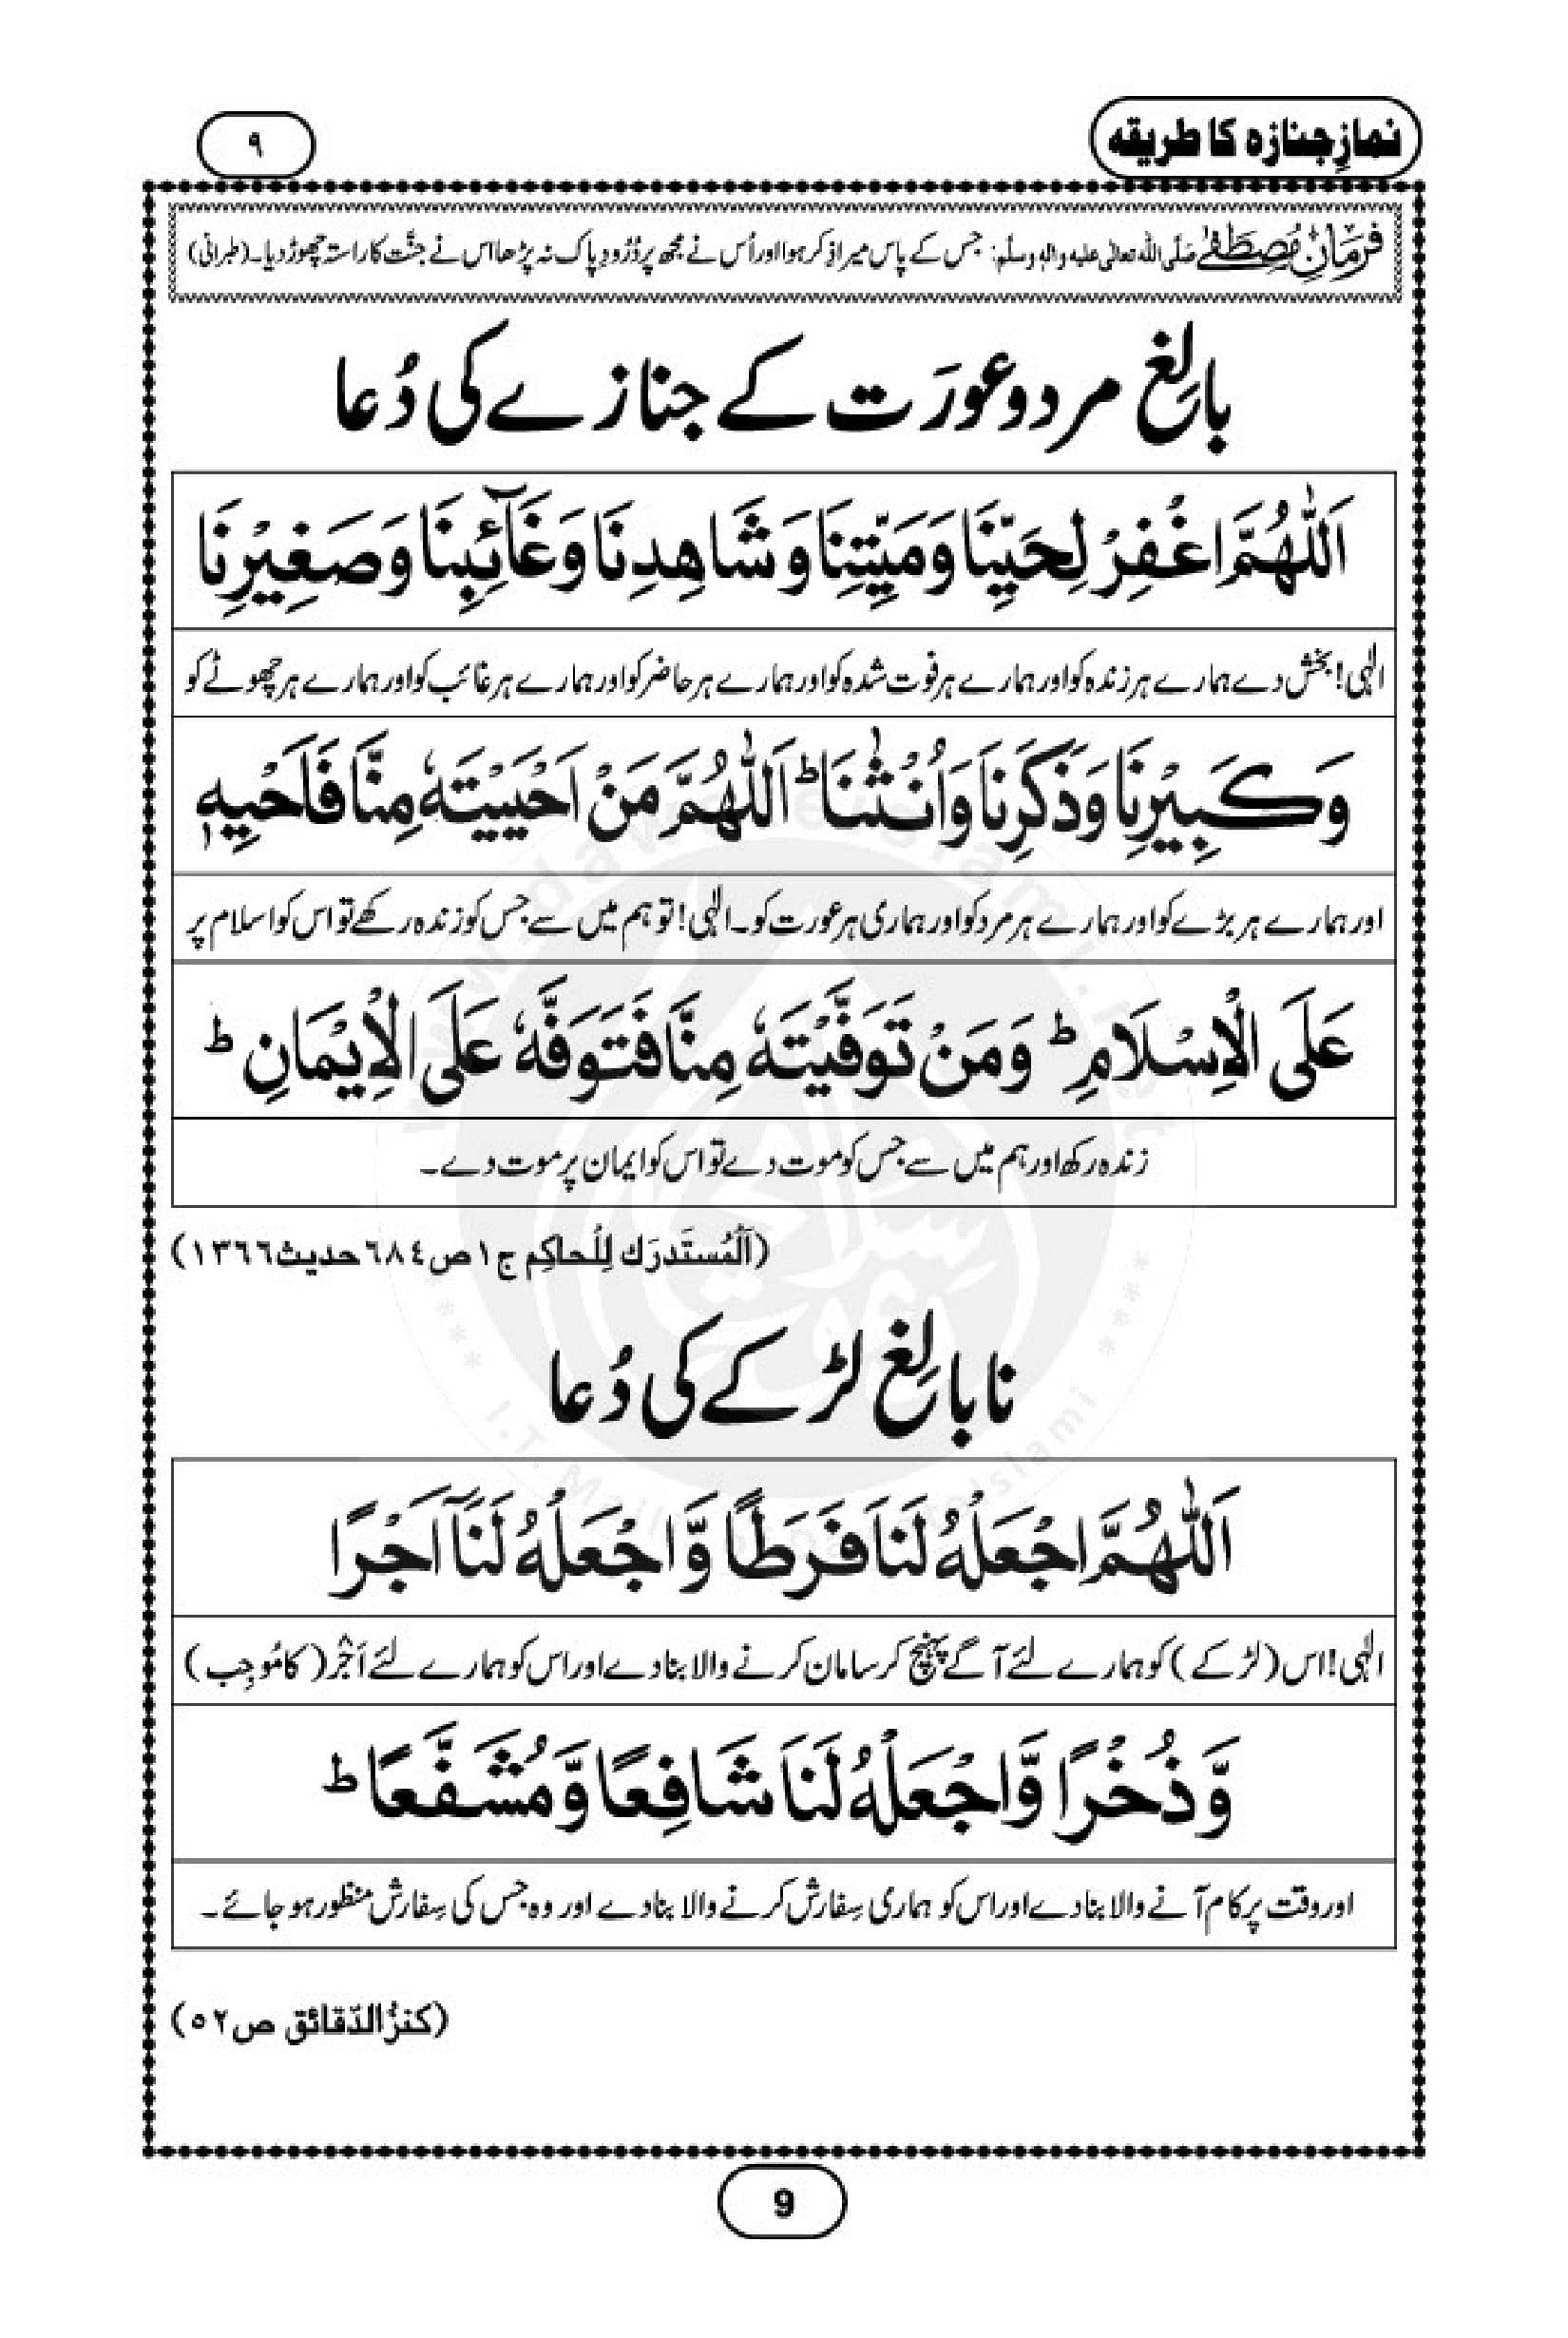 نمازِ جنازہ کا طریقہ
٩
فرمانِ مصطفٰے صَلَّى اللّٰہ تعالٰى علیہ واٰلہٖ وسلَّم: جس کے پاس میرا ذِکر ہوا اور اُس نے مجھ پر دُرُودِ پاک نہ پڑھا اس نے جنَّت کا راستہ چھوڑ دیا۔ (طبرانی)
بالِغ مرد و عورَت کے جنازے کی دُعا
اَللّٰهُمَّ اغْفِرْ لِحَيِّنَا وَمَيِّتِنَا وَشَاهِدِنَا وَغَآئِبِنَا وَصَغِيْرِنَا
الٰہی! بخش دے ہمارے ہر زندہ کو اور ہمارے ہر فوت شدہ کو اور ہمارے ہر حاضر کو اور ہمارے ہر غائب کو اور ہمارے ہر چھوٹے کو
وَكَبِيْرِنَا وَذَكَرِنَا وَاُنْثٰنَا ؕ اَللّٰهُمَّ مَنْ اَحْيَيْتَهٗ مِنَّا فَاَحْيِهٖ
اور ہمارے ہر بڑے کو اور ہمارے ہر مرد کو اور ہماری ہر عورت کو۔ الٰہی! تو ہم میں سے جس کو زندہ رکھے تو اس کو اسلام پر
عَلَى الْاِسْلَامِ ؕ وَمَنْ تَوَفَّيْتَهٗ مِنَّا فَتَوَفَّهٗ عَلَى الْاِيْمَانِ ؕ
زندہ رکھ اور ہم میں سے جس کو موت دے تو اس کو ایمان پر موت دے۔
(اَلْمُستَدرَك لِلْحاكِم ج١ ص٦٨٤ حديث١٣٦٦)
نابالِغ لڑکے کی دُعا
اَللّٰهُمَّ اجْعَلْهُ لَنَا فَرَطًا وَّاجْعَلْهُ لَنَآ اَجْرًا
الٰہی! اس (لڑکے) کو ہمارے لئے آگے پہنچ کر سامان کرنے والا بنا دے اور اس کو ہمارے لئے اَجْر (کا مُوجِب)
وَّذُخْرًا وَّاجْعَلْهُ لَنَا شَافِعًا وَّمُشَفَّعًا ؕ
اور وقت پر کام آنے والا بنا دے اور اس کو ہماری سِفارش کرنے والا بنا دے اور وہ جس کی سِفارش منظور ہو جائے۔
(كنزُ الدّقائق ص٥٢)
9
www.dawateislami.net
I.T. Majlis Dawateislami